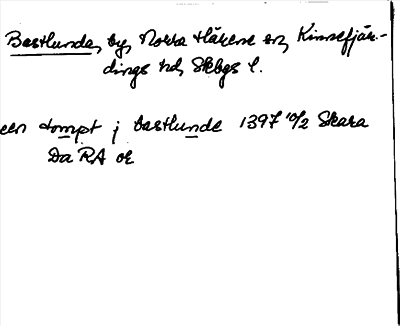 Bastlunda, by, Norra Härene sn, Kinnefjär-
dings hd, Skbgs l.
een tompt j bastlunde 1397 10/2 Skara
Da RA or